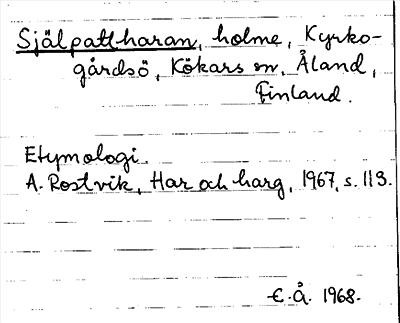 Själpattharan, holme, Kyrko-
gårdsö, Kökars sn, Åland,
Finland.
Etymologi.
A. Rostvik, Har och harg, 1967, s. 113.
E.Å. 1968.